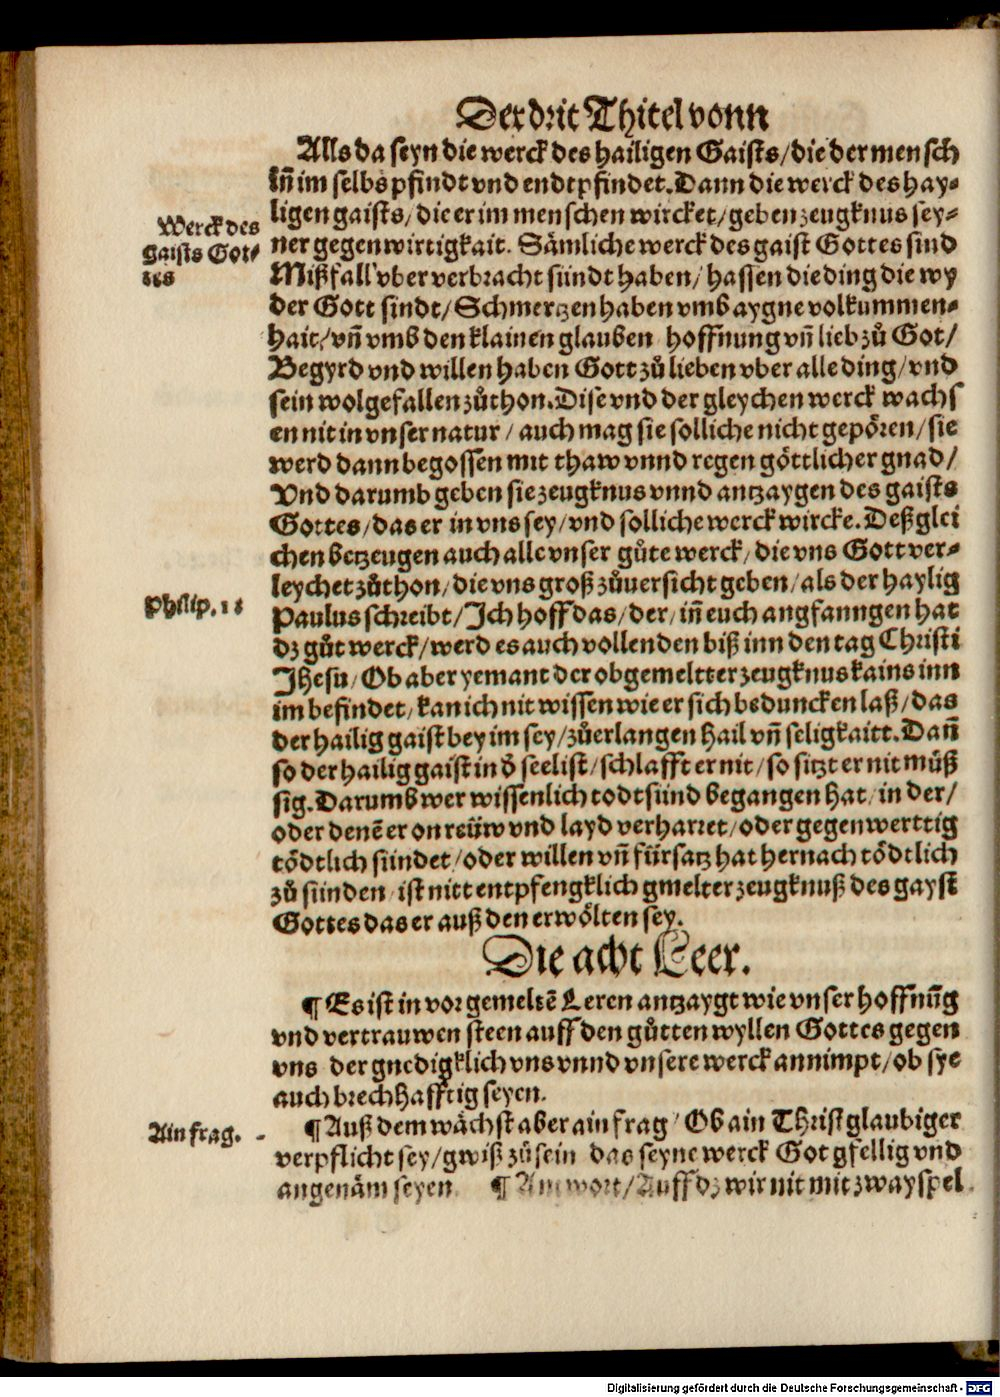 Der drit Thitel vonn
Alls da seyn die werck des hailigen Gaists/die der mensch
iñ im selbs pfindt vnd endtpfindet. Dann die werck des hay-
ligen gaists/die er im menschen wircket/geben zeugknus sey-
Werck des
gaists Got-
tes
ner gegenwirtigkait. Sämliche werck des gaist Gottes sind
Mißfall vber verbracht sündt haben/hassen die ding die wy
der Gott sindt/Schmertzen haben vmb aygne volkummen-
hait/vñ vmb den klainen glauben hoffnung vñ lieb zů Got/
Begyrd vnd willen haben Gott zů lieben vber alle ding/vnd
sein wolgefallen zůthon. Dise vnd der gleychen werck wachs
en nit in vnser natur/auch mag sie solliche nicht gepören/sie
werd dann begossen mit thaw vnnd regen göttlicher gnad/
Vnd darumb geben sie zeugknus vnnd antzaygen des gaists
Gottes/das er in vns sey/vnd solliche werck wircke. Deß glei
chen betzeugen auch alle vnser gůte werck/die vns Gott ver-
leychet zůthon/die vns groß zůuersicht geben/als der haylig
Philip. 1
Paulus schreibt/Ich hoff das/der/iñ euch angfanngen hat
dz gůt werck/werd es auch vollenden biß inn den tag Christi
Jhesu/Ob aber yemant der obgemeltter zeugknus kains inn
im befindet/kan ich nit wissen wie er sich beduncken laß/das
der hailig gaist bey im sey/zůerlangen hail vñ seligkaitt. Dañ
so der hailig gaist in d̕ seel ist/schlafft er nit/so sitzt er nit müß
sig. Darumb wer wissenlich todtsünd begangen hat/in der/
oder denē er on reüw vnd layd verharret/oder gegenwerttig
tödtlich sündet/oder willen vñ fürsatz hat hernach tödtlich
zů sünden/ist nitt entpfengklich gmelter zeugknuß des gayst
Gottes das er auß den erwölten sey.
Die acht Leer.
¶ Es ist in vorgemeltē Leren antzaygt wie vnser hoffnūg
vnd vertrauwen steen auff den gůtten wyllen Gottes gegen
vns der gnedigklich vns vnnd vnsere werck annimpt/ob sye
auch brechhafftig seyen.
Ain frag.
¶ Auß dem wächst aber ain frag/Ob ain Christglaubiger
verpflicht sey/gwiß zů sein das seyne werck Got gfellig vnd
angenäm seyen ¶ Antwort/Auff dz wir nit mit zwayspel
Digitalisierung gefördert durch die Deutsche Forschungsgemeinschaft - DFG